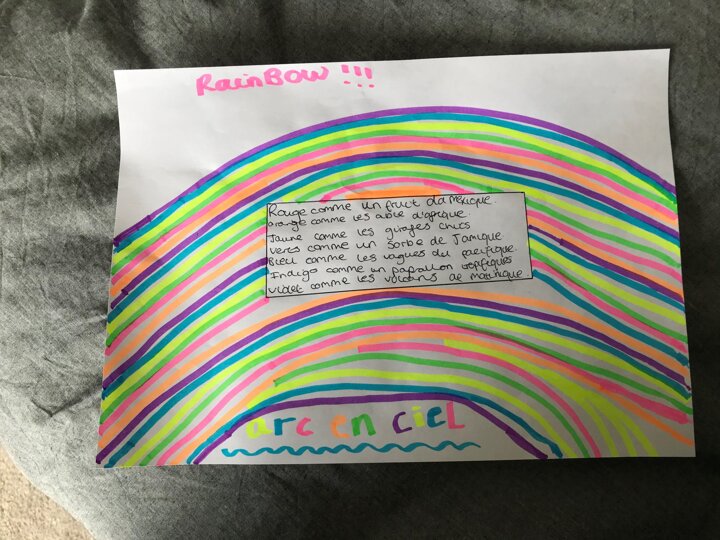 RainBow !!!
Rouge comme un fruit du mexique.
orange comme les able d'afrique.
Jaune comme les girafes chics
Veres comme un sorbe de Jamique
Bleu comme les vagues du pacifique.
Indigo comme un papallon
violet comme les volcans de martinique
arc en ciel